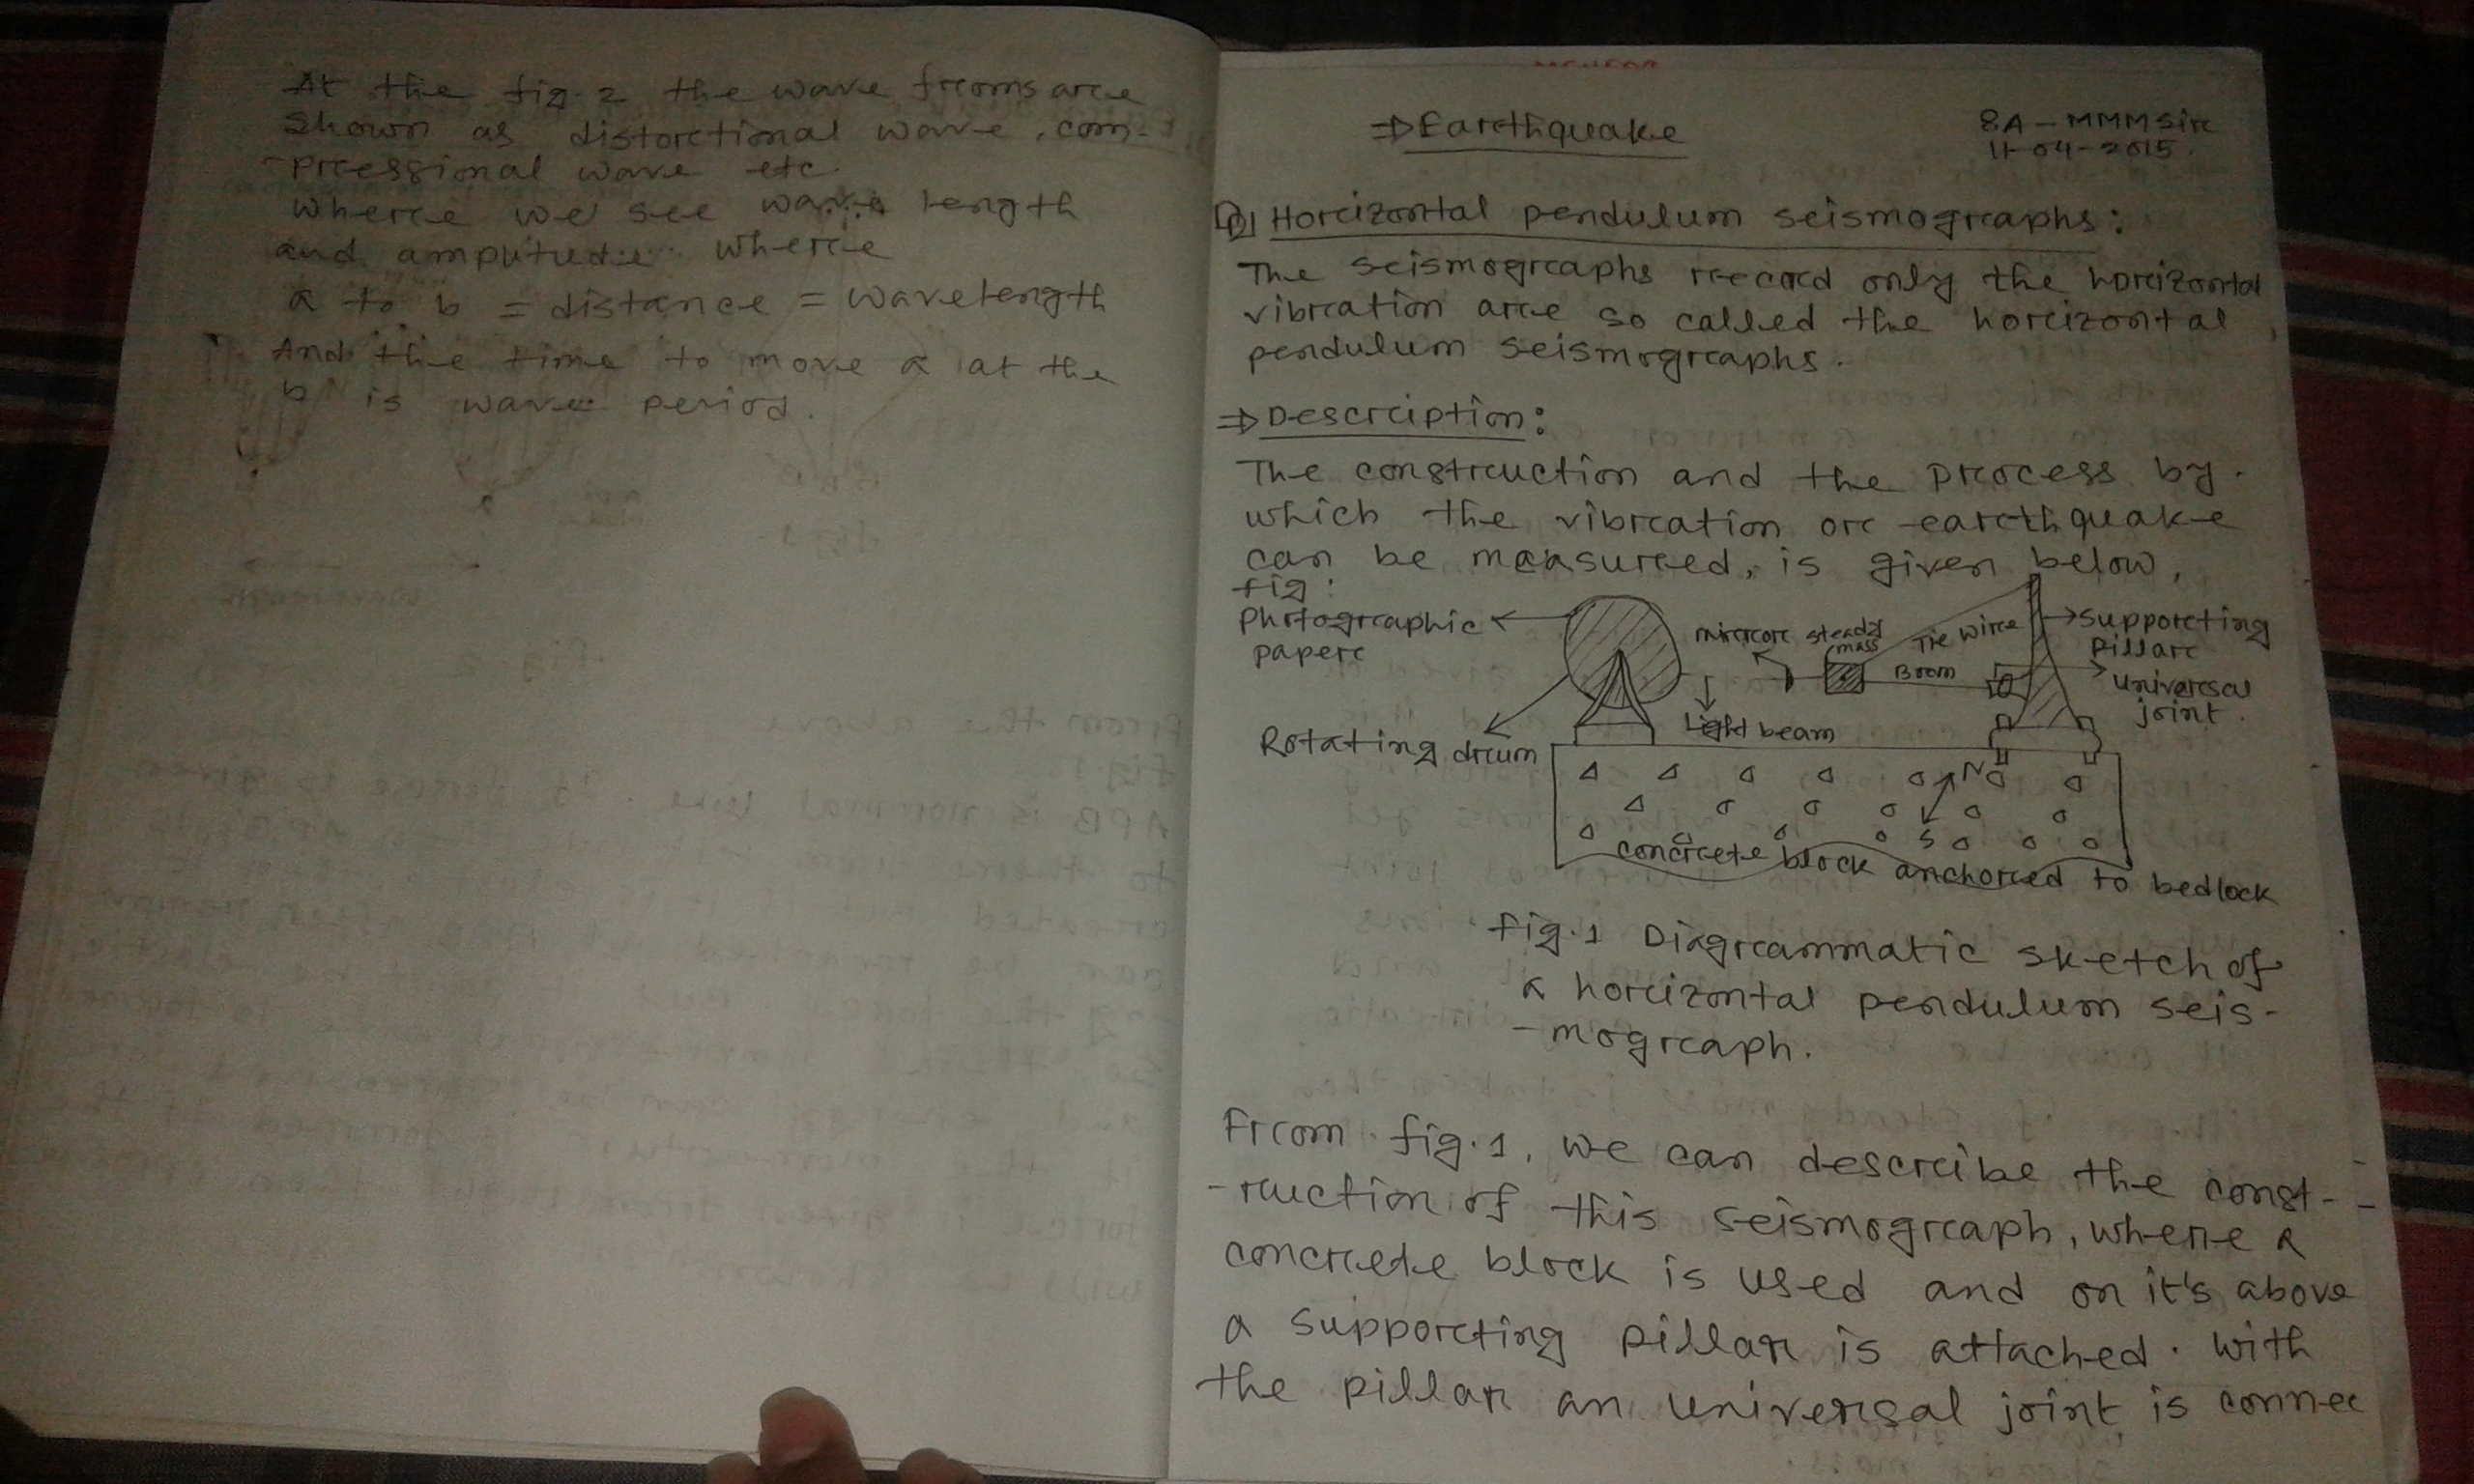 At the fig. 2 the wave froms are
shown as distortional wave, com-
-pressional wave etc
where we see wave length
and amplitude where
a to b = distance = wavelength
And the time to move a at the
b is wave period.
⇒ Earthquake
8A-MMM Sir
11-04-2015.
Horizontal pendulum seismographs:
The seismographs record only the horizontal
vibration are so called the horizontal
pendulum seismographs.
⇒ Description:
The construction and the process by
which the vibration or earthquake
can be measured, is given below,
fig:
Photographic
paper
mirror
steady
mass
Tie wire
Supporting
pillar
Boom
universal
joint.
Light beam
Rotating drum
N
S
concrete block anchored to bedlock
fig.1 Diagrammatic sketch of
a horizontal pendulum seis-
-mograph.
From fig.1, we can describe the const-
-ruction of this seismograph, where a
concrete block is used and on it's above
a supporting pillar is attached. With
the pillar an universal joint is connec